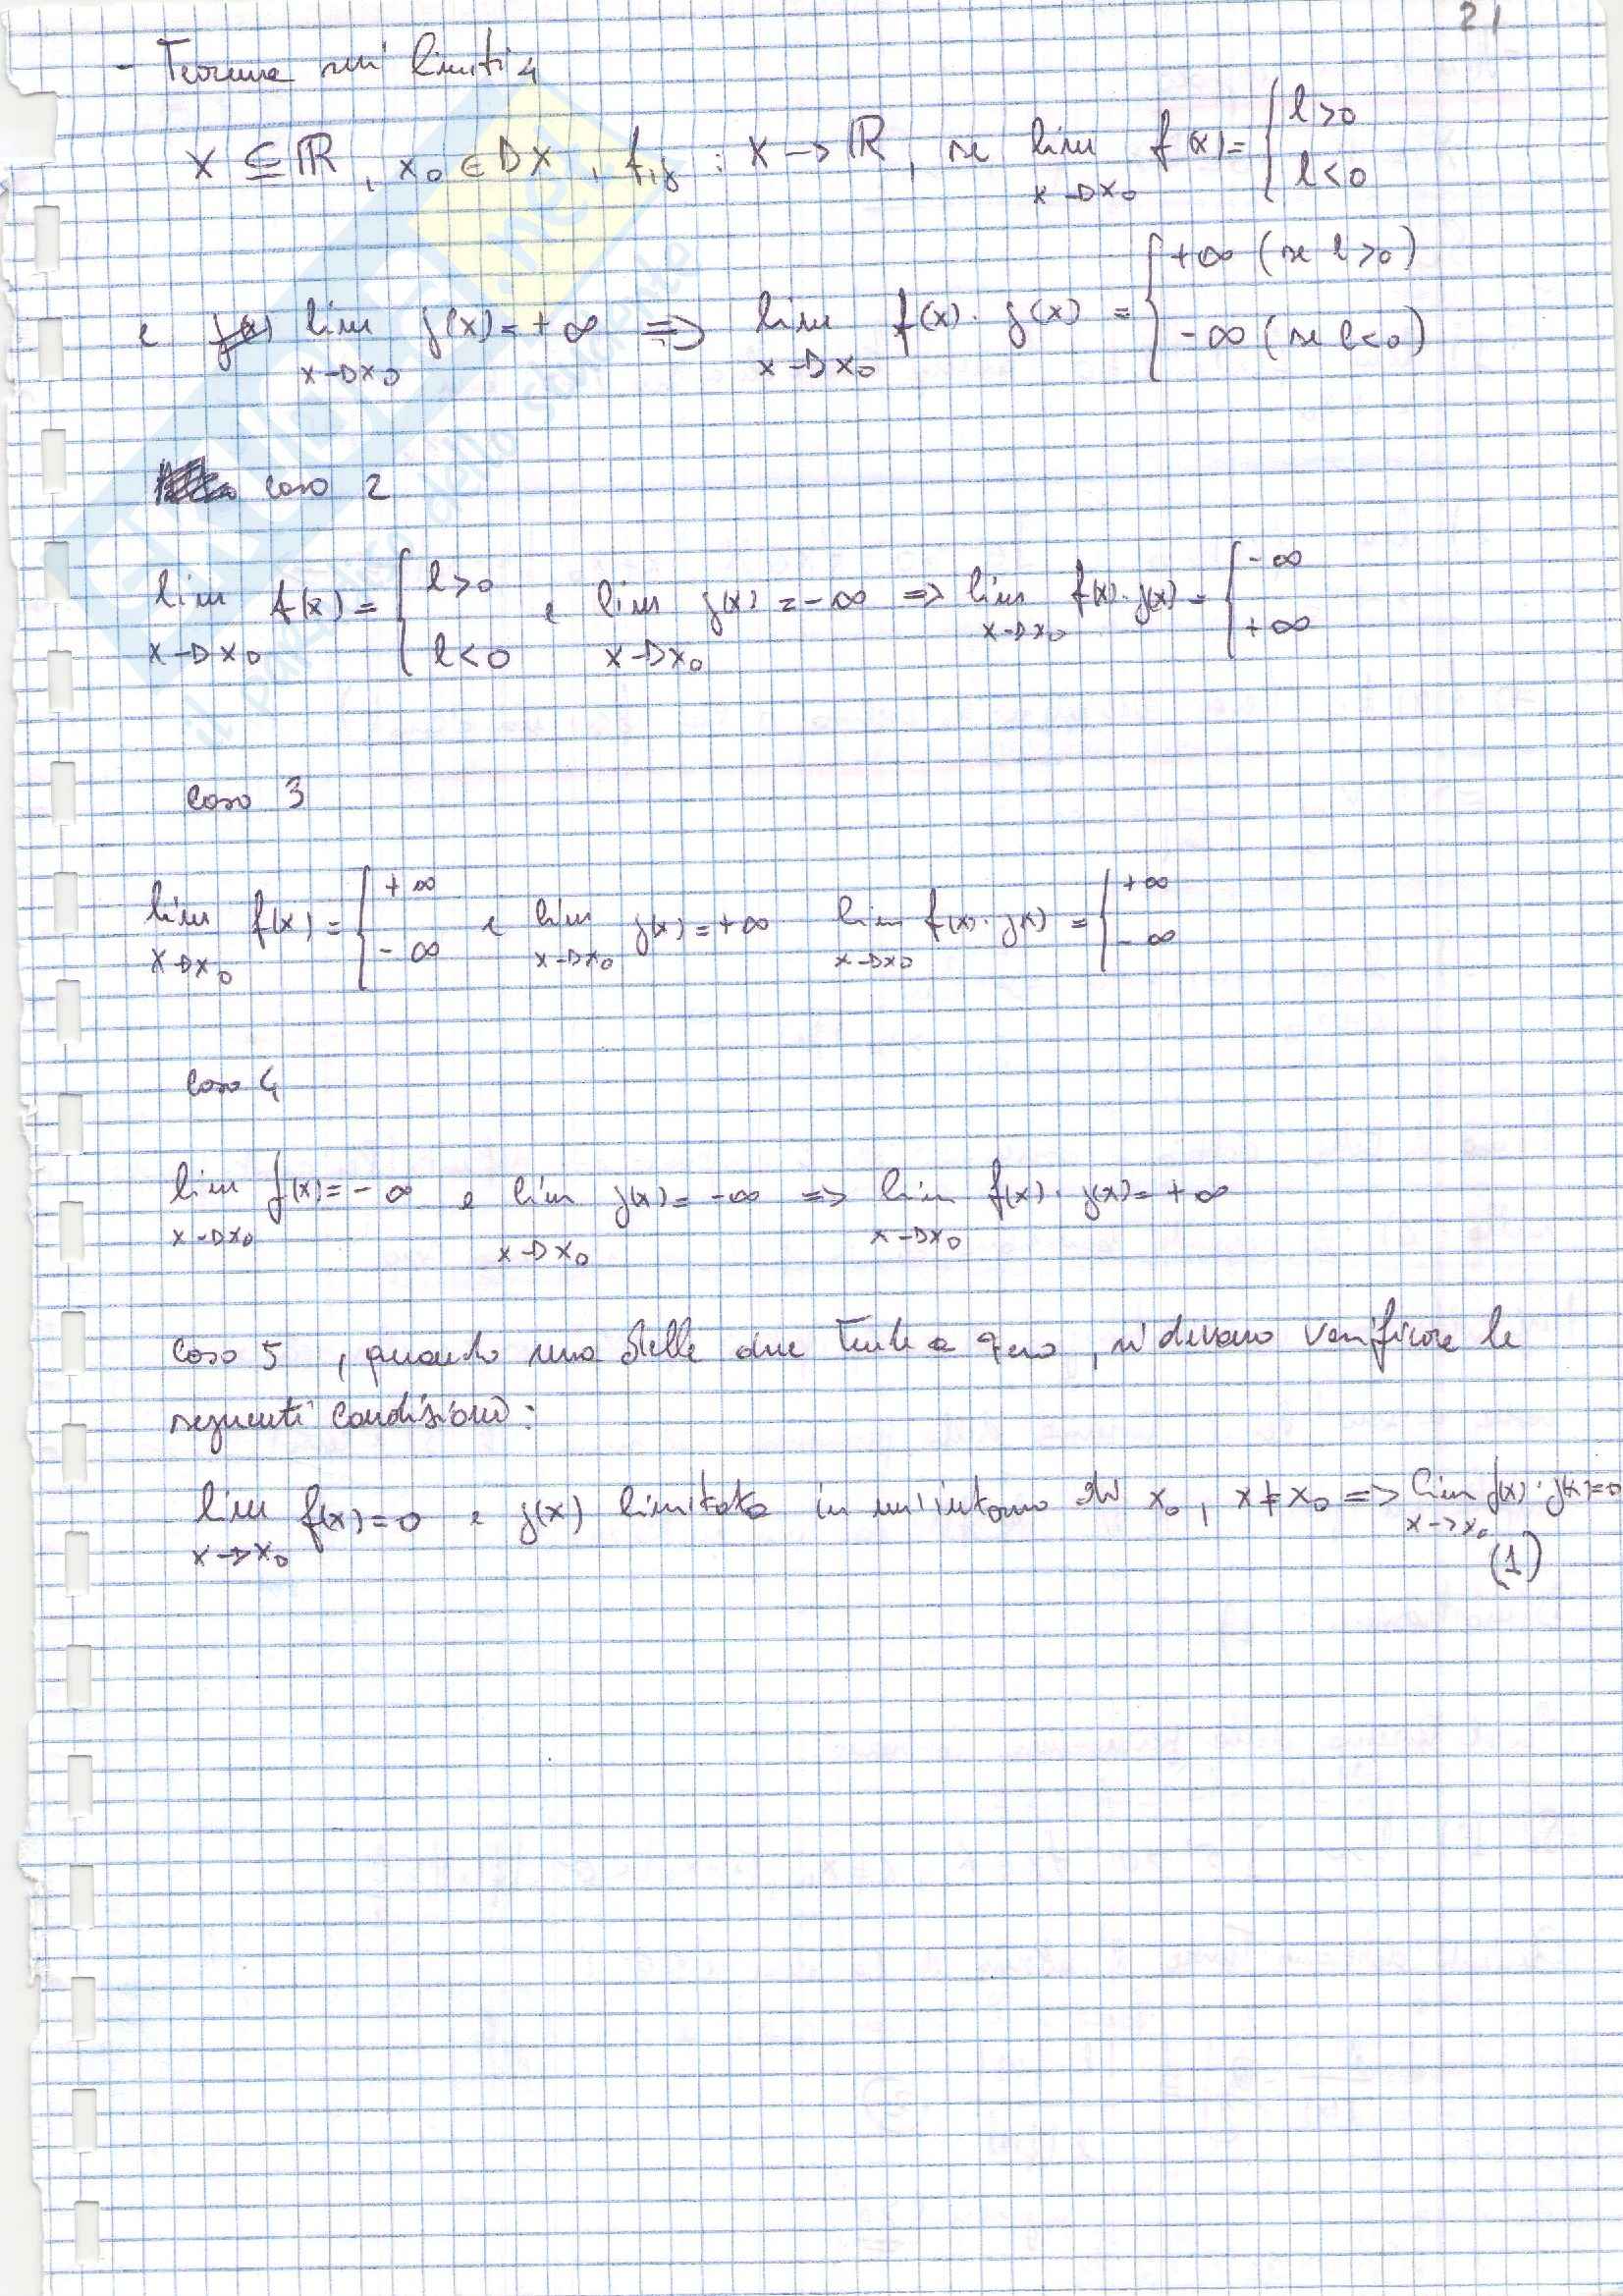 21
- Teorema sui limiti 4
X ⊆ ℝ, x₀ ∈ DX, f,g : X → ℝ, se lim x→x₀ f(x) = { l>0 l<0
e g(x) lim x→x₀ g(x) = +∞ ⇒ lim x→x₀ f(x)·g(x) = { +∞ (se l>0) -∞ (se l<0)
caso 2
lim x→x₀ f(x) = { l>0 l<0 e lim x→x₀ g(x) = -∞ => lim x→x₀ f(x)·g(x) = { -∞ +∞
caso 3
lim x→x₀ f(x) = { +∞ -∞ e lim x→x₀ g(x) = +∞ lim x→x₀ f(x)·g(x) = { +∞ -∞
caso 4
lim x→x₀ f(x) = -∞ e lim x→x₀ g(x) = -∞ => lim x→x₀ f(x)·g(x) = +∞
caso 5, quando una delle due tende a zero, si devono verificare le
seguenti condizioni:
lim x→x₀ f(x) = 0 e g(x) limitata in un intorno di x₀, x ≠ x₀ => lim x→x₀ f(x)·g(x) = 0
(1)